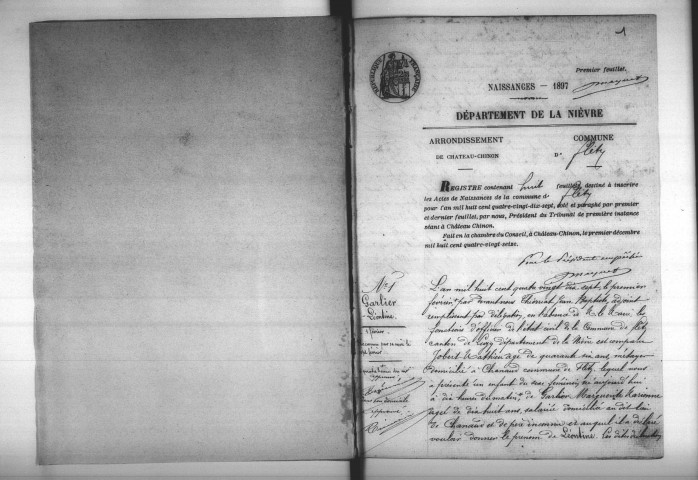 1
RÉPUBLIQUE FRANÇAISE
Premier feuillet.
NAISSANCES — 1897
DÉPARTEMENT DE LA NIÈVRE
ARRONDISSEMENT
DE CHATEAU-CHINON
COMMUNE
D' fléty
REGISTRE contenant huit feuillets, destiné à inscrire
les Actes de Naissances de la commune de fléty
pour l'an mil huit cent quatre-vingt-dix-sept, coté et paraphé par premier
et dernier feuillet, par nous, Président du Tribunal de première instance
séant à Château Chinon.
Fait en la chambre du Conseil, à Château-Chinon, le premier décembre
mil huit cent quatre-vingt-seize.
Pour le Président empêché
N° 1
Garlier
Léontine
L'an mil huit cent quatre vingt dix sept le premier
février, par devant nous Jean Baptiste, adjoint
remplissant par délégation, en l'absence de le Maire, les
fonctions d'officier de l'état civil de la Commune de fléty
canton de Luzy département de la Nièvre est comparu
Jobert Mathieu âgé de quarante six ans
domicilié à Chanaud commune de fléty, lequel nous
a présenté un enfant du sexe féminin, né aujourd'hui
à dix heures du matin, de Garlier Marguerite
âgée de dix huit ans, salariée domiciliée au dit lieu
de Chanaud et de père inconnu et auquel il a déclaré
vouloir donner le prénom de Léontine. Les dites